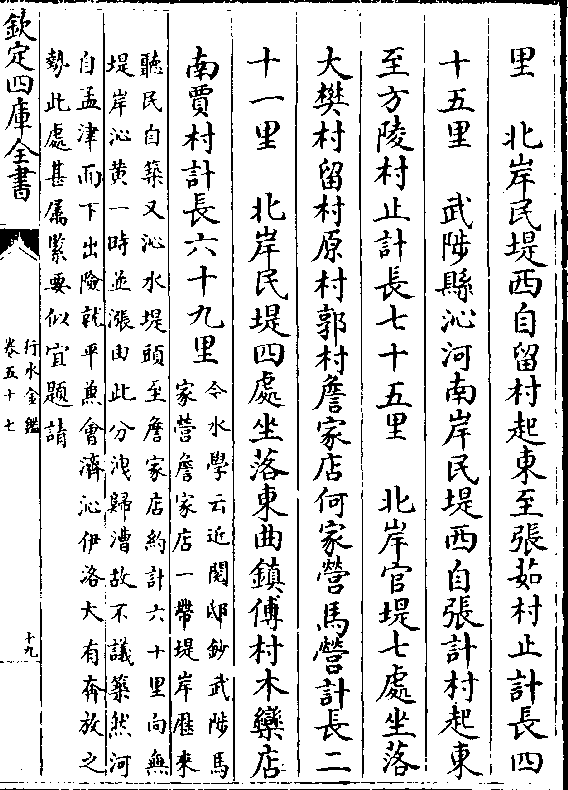 里　北岸民堤西自留村起東至張茹村止計長四
十五里　武陟縣沁河南岸民堤西自張計村起東
至方陵村止計長七十五里　北岸官堤七處坐落
大樊村留村原村郭村詹家店何家營馬營計長二
十一里　北岸民堤四處坐落東曲鎮傅村木欒店
南賈村計長六十九里
今水學云近閱邸鈔武陟馬
家營詹家店一帶堤岸歷來
聽民自築又沁水堤頭至詹家店約計六十里向無
堤岸沁黃一時並漲由此分洩歸漕故不議築然河
自孟津而下出險就平兼會濟沁伊洛大有奔放之
勢此處甚属緊要似宜題請
欽定四庫全書
行水金鑑
卷五十七
十九